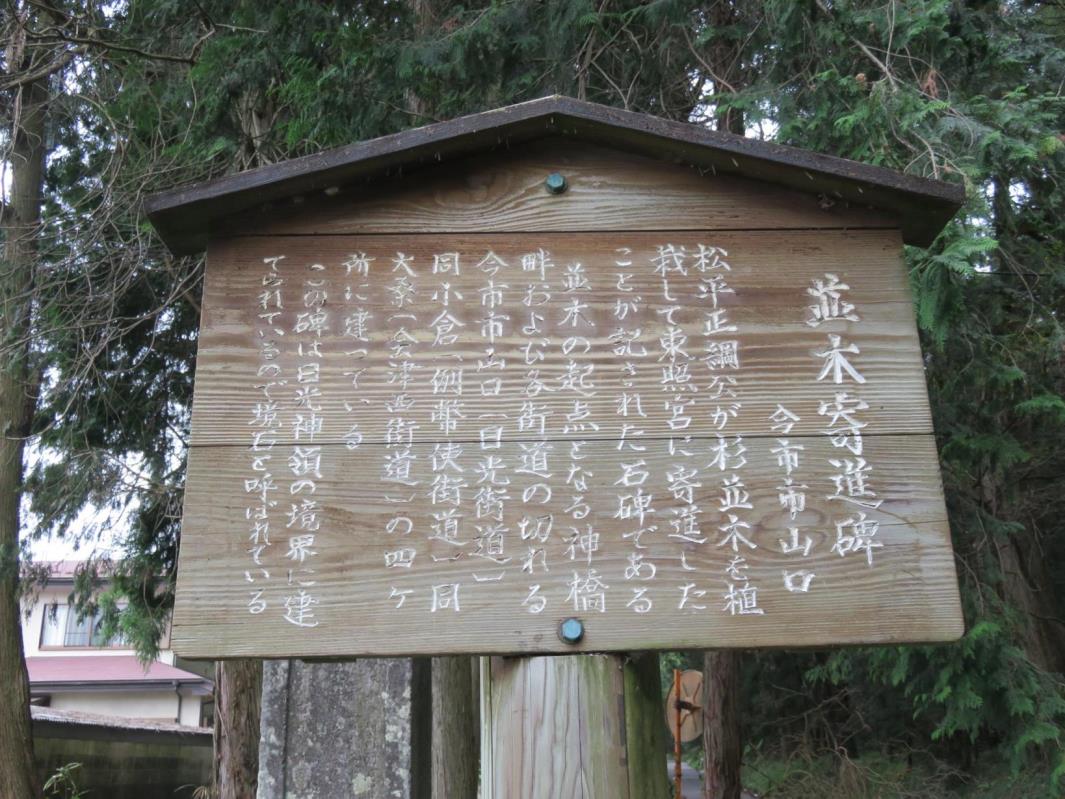 並木寄進碑
今市市山口
松平正綱公が杉並木を植
栽して東照宮に寄進した
ことが記された石碑である
並木の起点となる神橋
畔および各街道の切れる
今市市山口(日光街道)
同小倉(例幣使街道)同
大桑(会津西街道)の四ケ
所に建っている
この碑は日光神領の境界に建
てられているので境石と呼ばれている